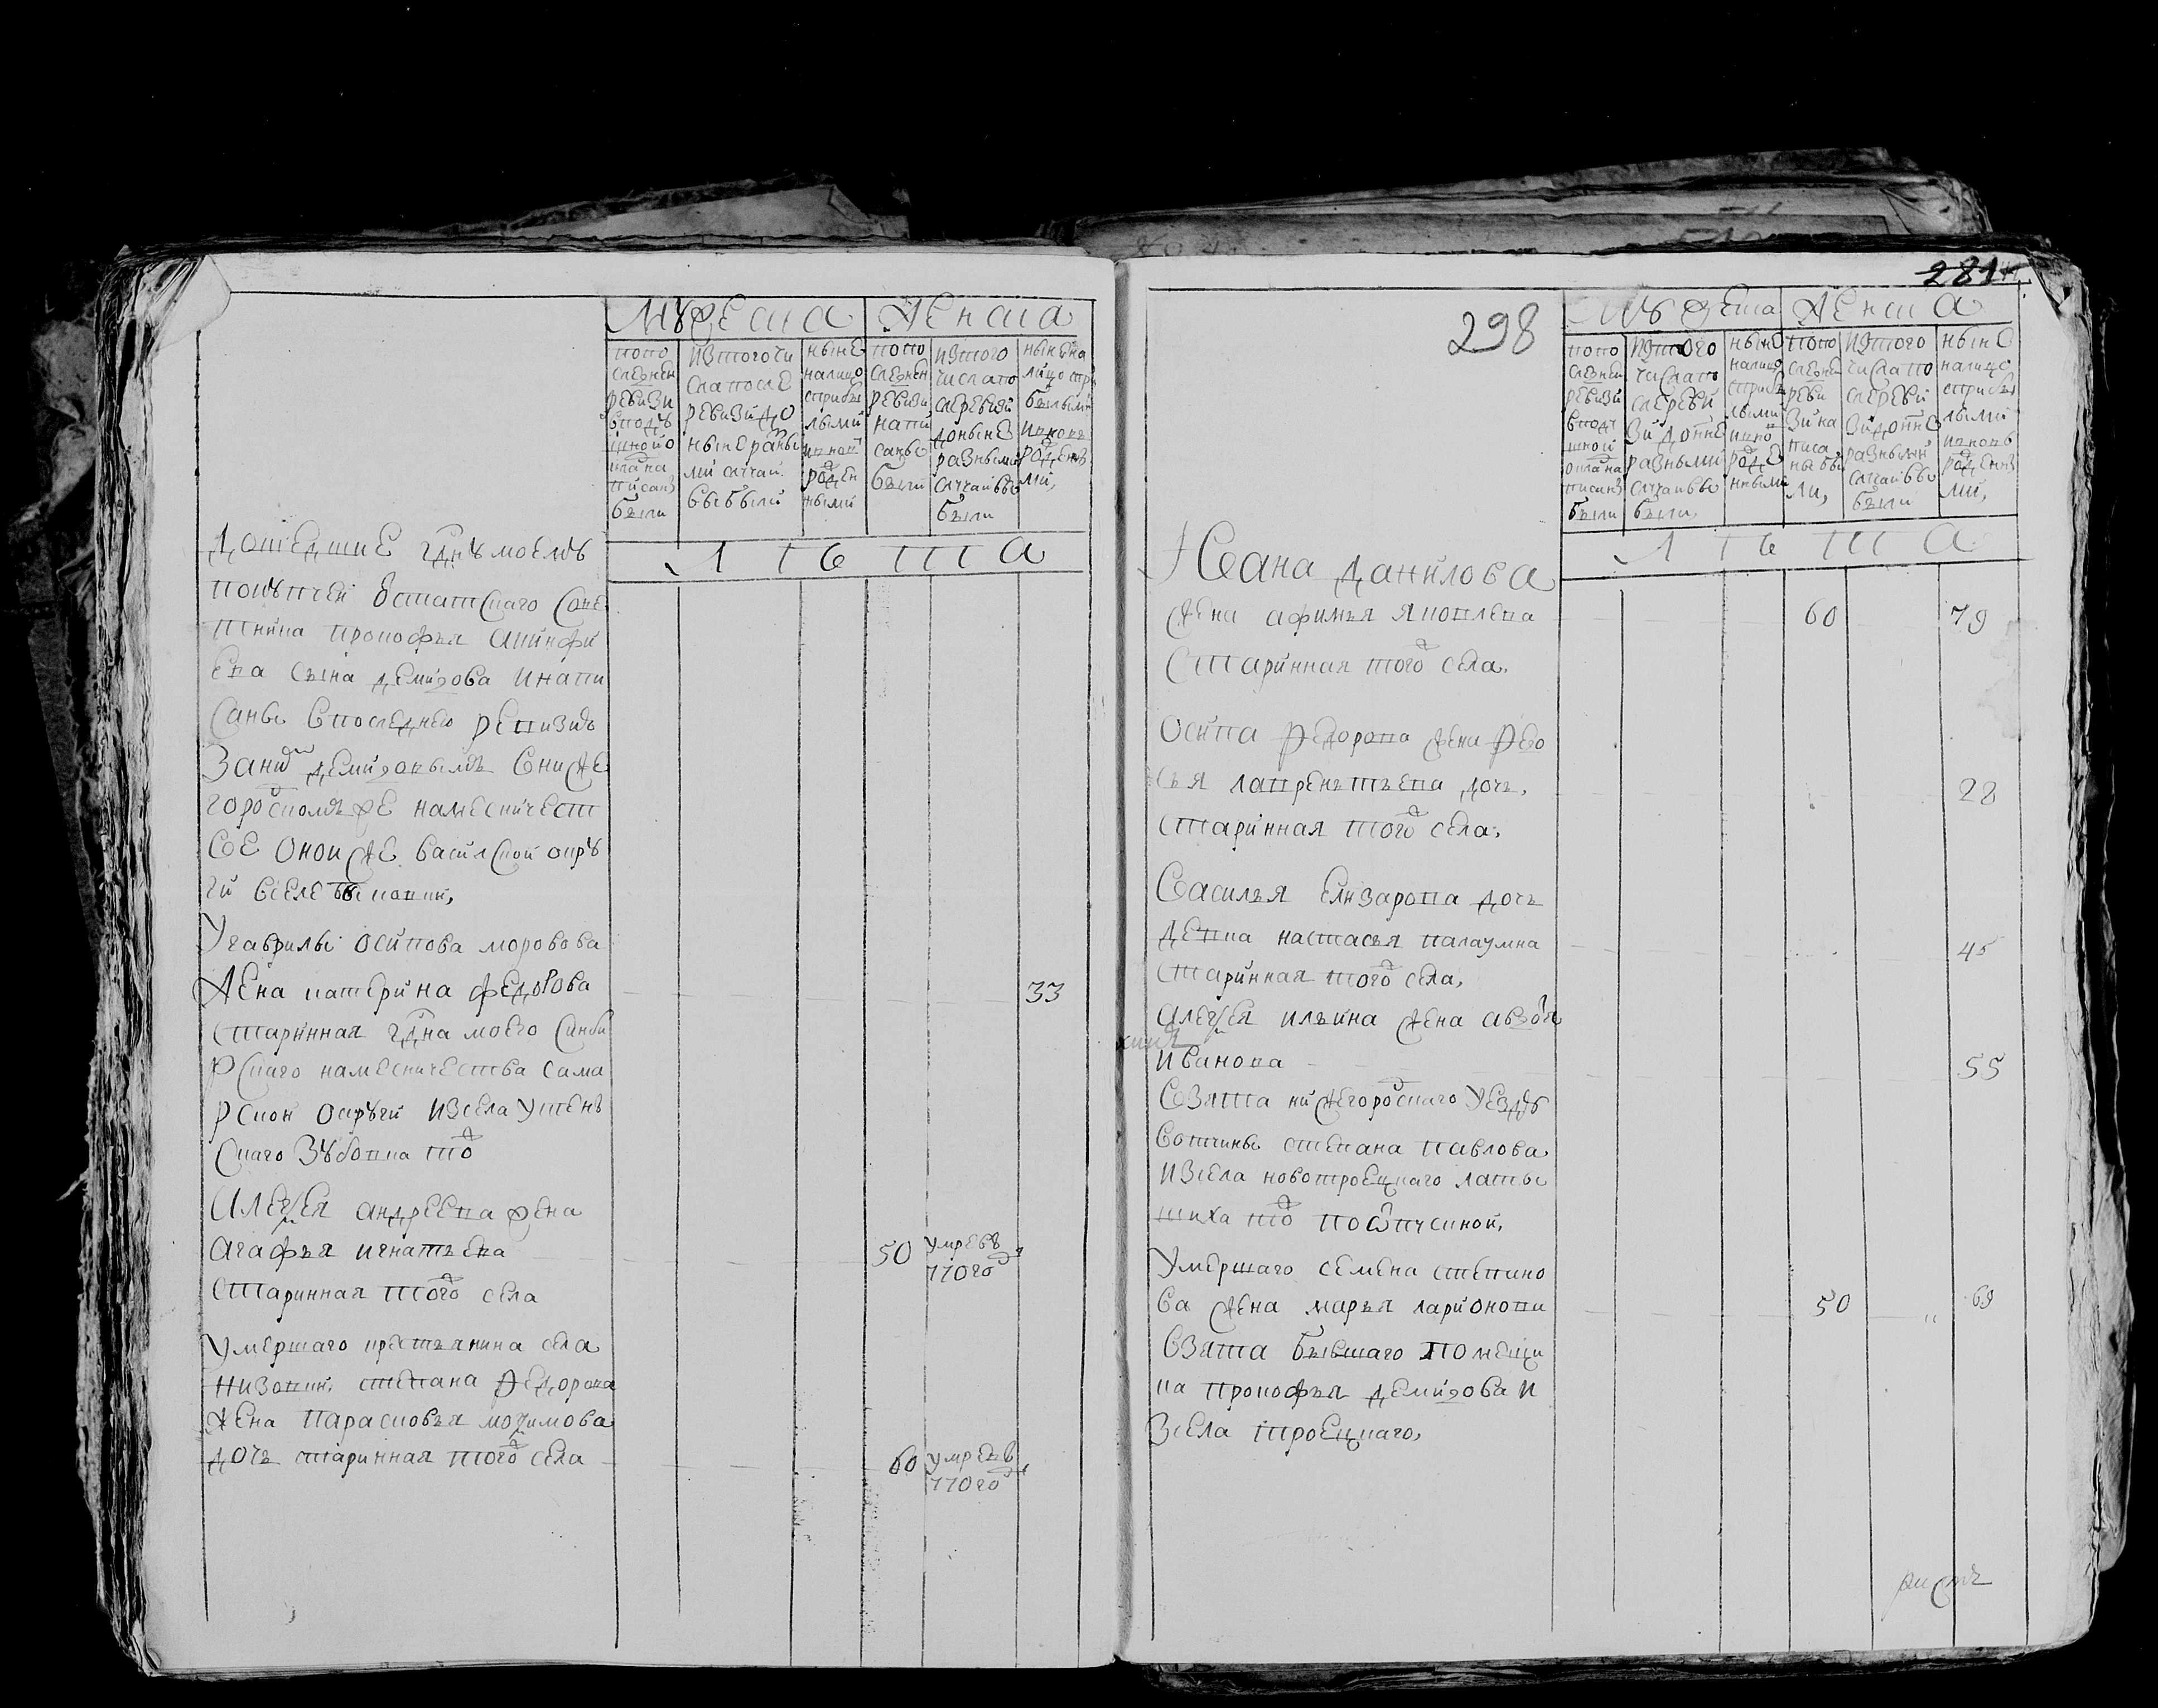 мужеска
женска
попо
следней
ревизи
вподу
шной о
кладна
писаны
были
изтогочи
сла после
ревизи до
ныне разны
ми случаи
вы были
ныне
налицо
сприбы
лыми
ивнов
рожден
ными
попо
следней
ревизи
напи
саны
были
изтого
числапо
слеревизи
доныне
разными
случаивы
были
нынена
лицо спри
былыми
ивновь
рожденны
ми,
лета
Дошедшие гдну моему
покупчеи устатскаго сове
тника прокофья акинфи
ева сына демидова инапи
саны впоследнею ревизию
заним демидовымъ внижe
городскомъ же намесничест
ве оной же васильской окру
ги вселе быковки,
Угаврилы осипова морозова
жена катерина федорова
33
старинная гдна моего синби
рскаго намесничества сама
рской округи изсела утевъ
скаго зубовка тож
Алексея андреева жена
агафья игнатьева
50
умре въ
770 год
старинная того ж села
умершаго крестьянина села
низовки, степана федорова
жена парасковья ма
дочь старинная того ж села
60
умре в
770 год
281
298
мужеска
женска
попо
следней
ревизи
вподу
шной
окладна
писаны
были
изтого
числапо
слереви
зи доне
разными
случаивы
были
ныне
налицо
сприбы
лыми
ивно
рожде
нными
попо
следне
реви
зи на
писа
ны бы
ли,
изтого
числа по
слереви
зи доне
разными
случаивы
были
ныне
налицо
сприбы
лыми
ивновь
рожденны
ми,
лета
Ивана данилова
жена афимья яковлева
60
79
старинная того ж села.
осипа федорова жена федо
сья лаврентьева дочь,
28
старинная того ж села,
Василья елизарова дочь
девка настасья
45
старинная того ж села,
алексея ильина жена авдотья
иванова
55
взята нижегородскаго уезду
вотчины степана павлова
изсела новотроецкаго латы
шиха тож по отпускной,
умершаго семена степано
ва жена марья ларионова
50
69
взята бывшаго помещи
ка прокофья демидова и
зсела троецкаго,